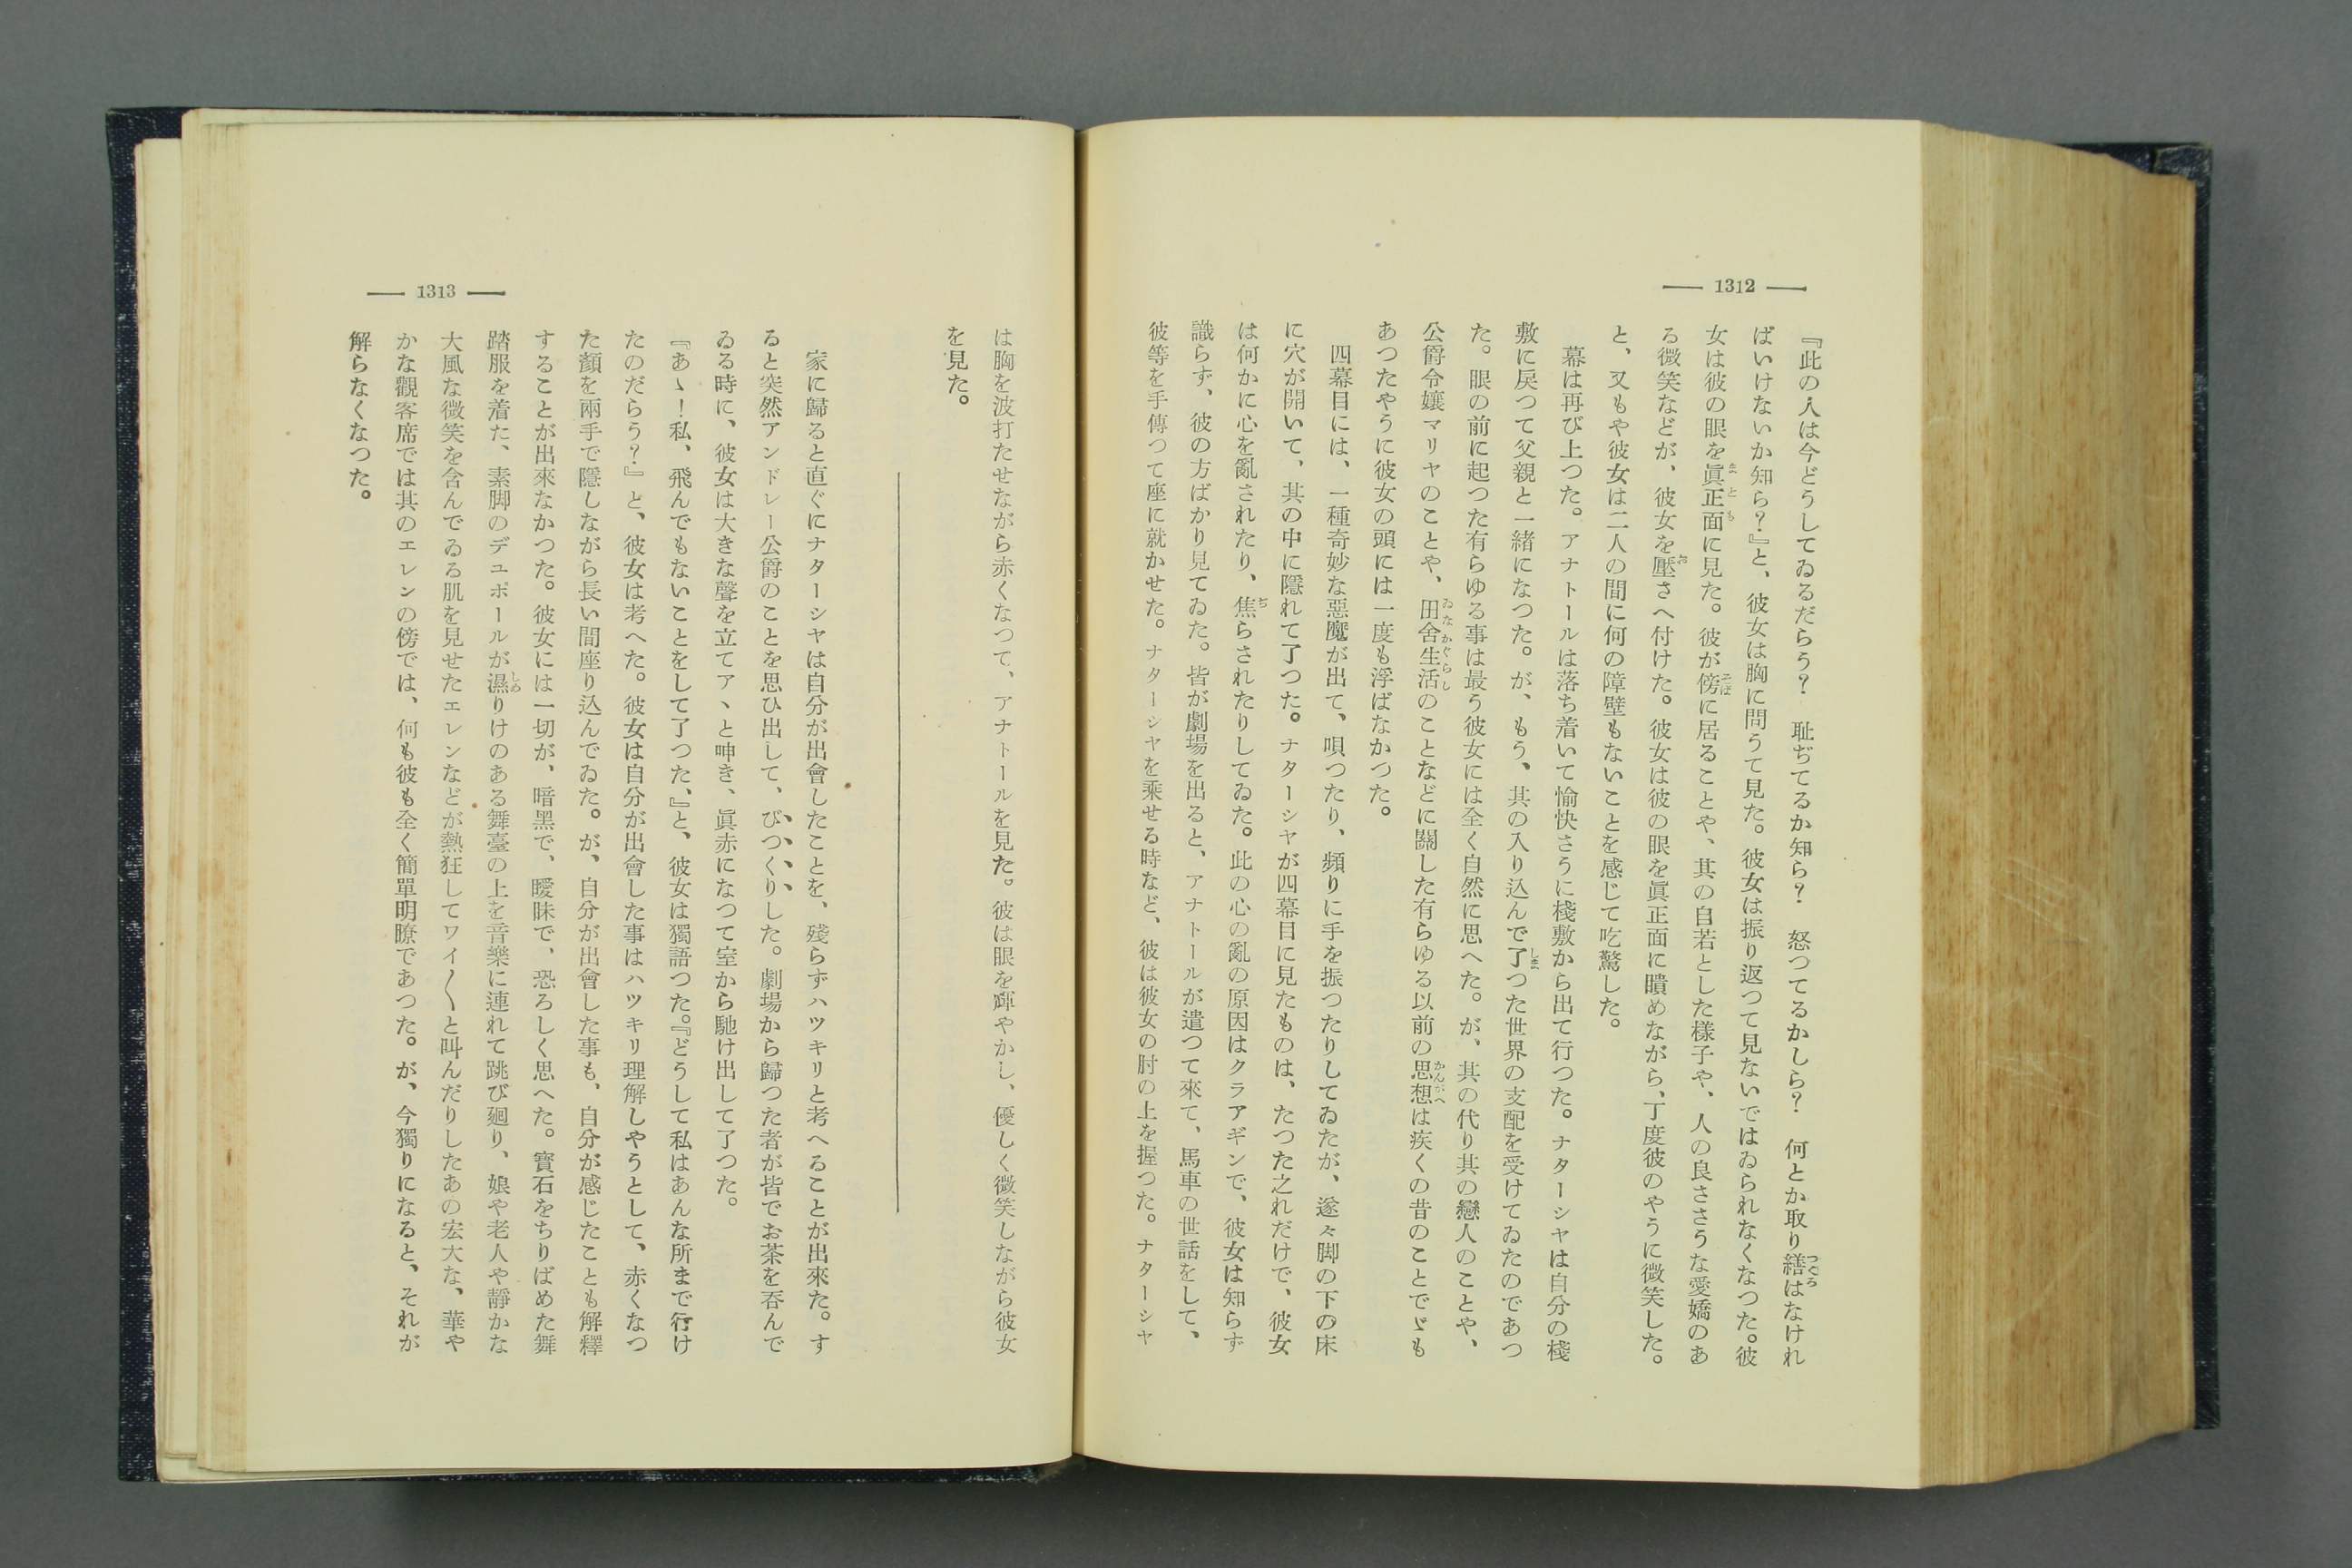 — 1312 —
『此の人は今どうしてゐるだらう？　耻ぢてるか知ら？　怒つてるかしら？　何とか取り繕はなけれ
ばいけないか知ら？』と、彼女は胸に問うて見た。彼女は振り返つて見ないではゐられなくなつた。彼
女は彼の眼を眞正面に見た。彼が傍に居ることや、其の自若とした樣子や、人の良ささうな愛嬌のあ
る微笑などが、彼女を壓さへ付けた。彼女は彼の眼を眞正面に瞶めながら、丁度彼のやうに微笑した。
と、又もや彼女は二人の間に何の障壁もないことを感じて吃驚した。
幕は再び上つた。アナトールは落ち着いて愉快さうに棧敷から出て行つた。ナターシヤは自分の棧
敷に戻つて父親と一緒になつた。が、もう、其の入り込んで了つた世界の支配を受けてゐたのであつ
た。眼の前に起つた有らゆる事は最う彼女には全く自然に思へた。が、其の代り其の戀人のことや、
公爵令孃マリヤのことや、田舍生活のことなどに關した有らゆる以前の思想は疾くの昔のことでゞも
あつたやうに彼女の頭には一度も浮ばなかつた。
四幕目には、一種奇妙な惡魔が出て、唄つたり、頻りに手を振つたりしてゐたが、遂々脚の下の床
に穴が開いて、其の中に隱れて了つた。ナターシヤが四幕目に見たものは、たつた之れだけで、彼女
は何かに心を亂されたり、焦らされたりしてゐた。此の心の亂の原因はクラアギンで、彼女は知らず
識らず、彼の方ばかり見てゐた。皆が劇場を出ると、アナトールが遣つて來て、馬車の世話をして、
彼等を手傳つて座に就かせた。ナターシヤを乘せる時など、彼は彼女の肘の上を握つた。ナターシヤ
— 1313 —
は胸を波打たせながら赤くなつて、アナトールを見た。彼は眼を輝やかし、優しく微笑しながら彼女
を見た。
家に歸ると直ぐにナターシヤは自分が出會したことを、殘らずハツキリと考へることが出來た。す
ると突然アンドレー公爵のことを思ひ出して、びつくりした。劇場から歸つた者が皆でお茶を呑んで
ゐる時に、彼女は大きな聲を立てアヽと呻き、眞赤になつて室から馳け出して了つた。
『あゝ！私、飛んでもないことをして了つた、』と、彼女は獨語つた。『どうして私はあんな所まで行け
たのだらう？』と、彼女は考へた。彼女は自分が出會した事はハツキリ理解しやうとして、赤くなつ
た顏を兩手で隱しながら長い間座り込んでゐた。が、自分が出會した事も、自分が感じたことも解釋
することが出來なかつた。彼女には一切が、暗黑で、曖昧で、恐ろしく思へた。寳石をちりばめた舞
踏服を着た、素脚のデユポールが濕りけのある舞臺の上を音樂に連れて跳び廻り、娘や老人や靜かな
大風な微笑を含んでゐる肌を見せたエレンなどが熱狂してワイ〱と叫んだりしたあの宏大な、華や
かな觀客席では其のエレンの傍では、何も彼も全く簡單明瞭であつた。が、今獨りになると、それが
解らなくなつた。